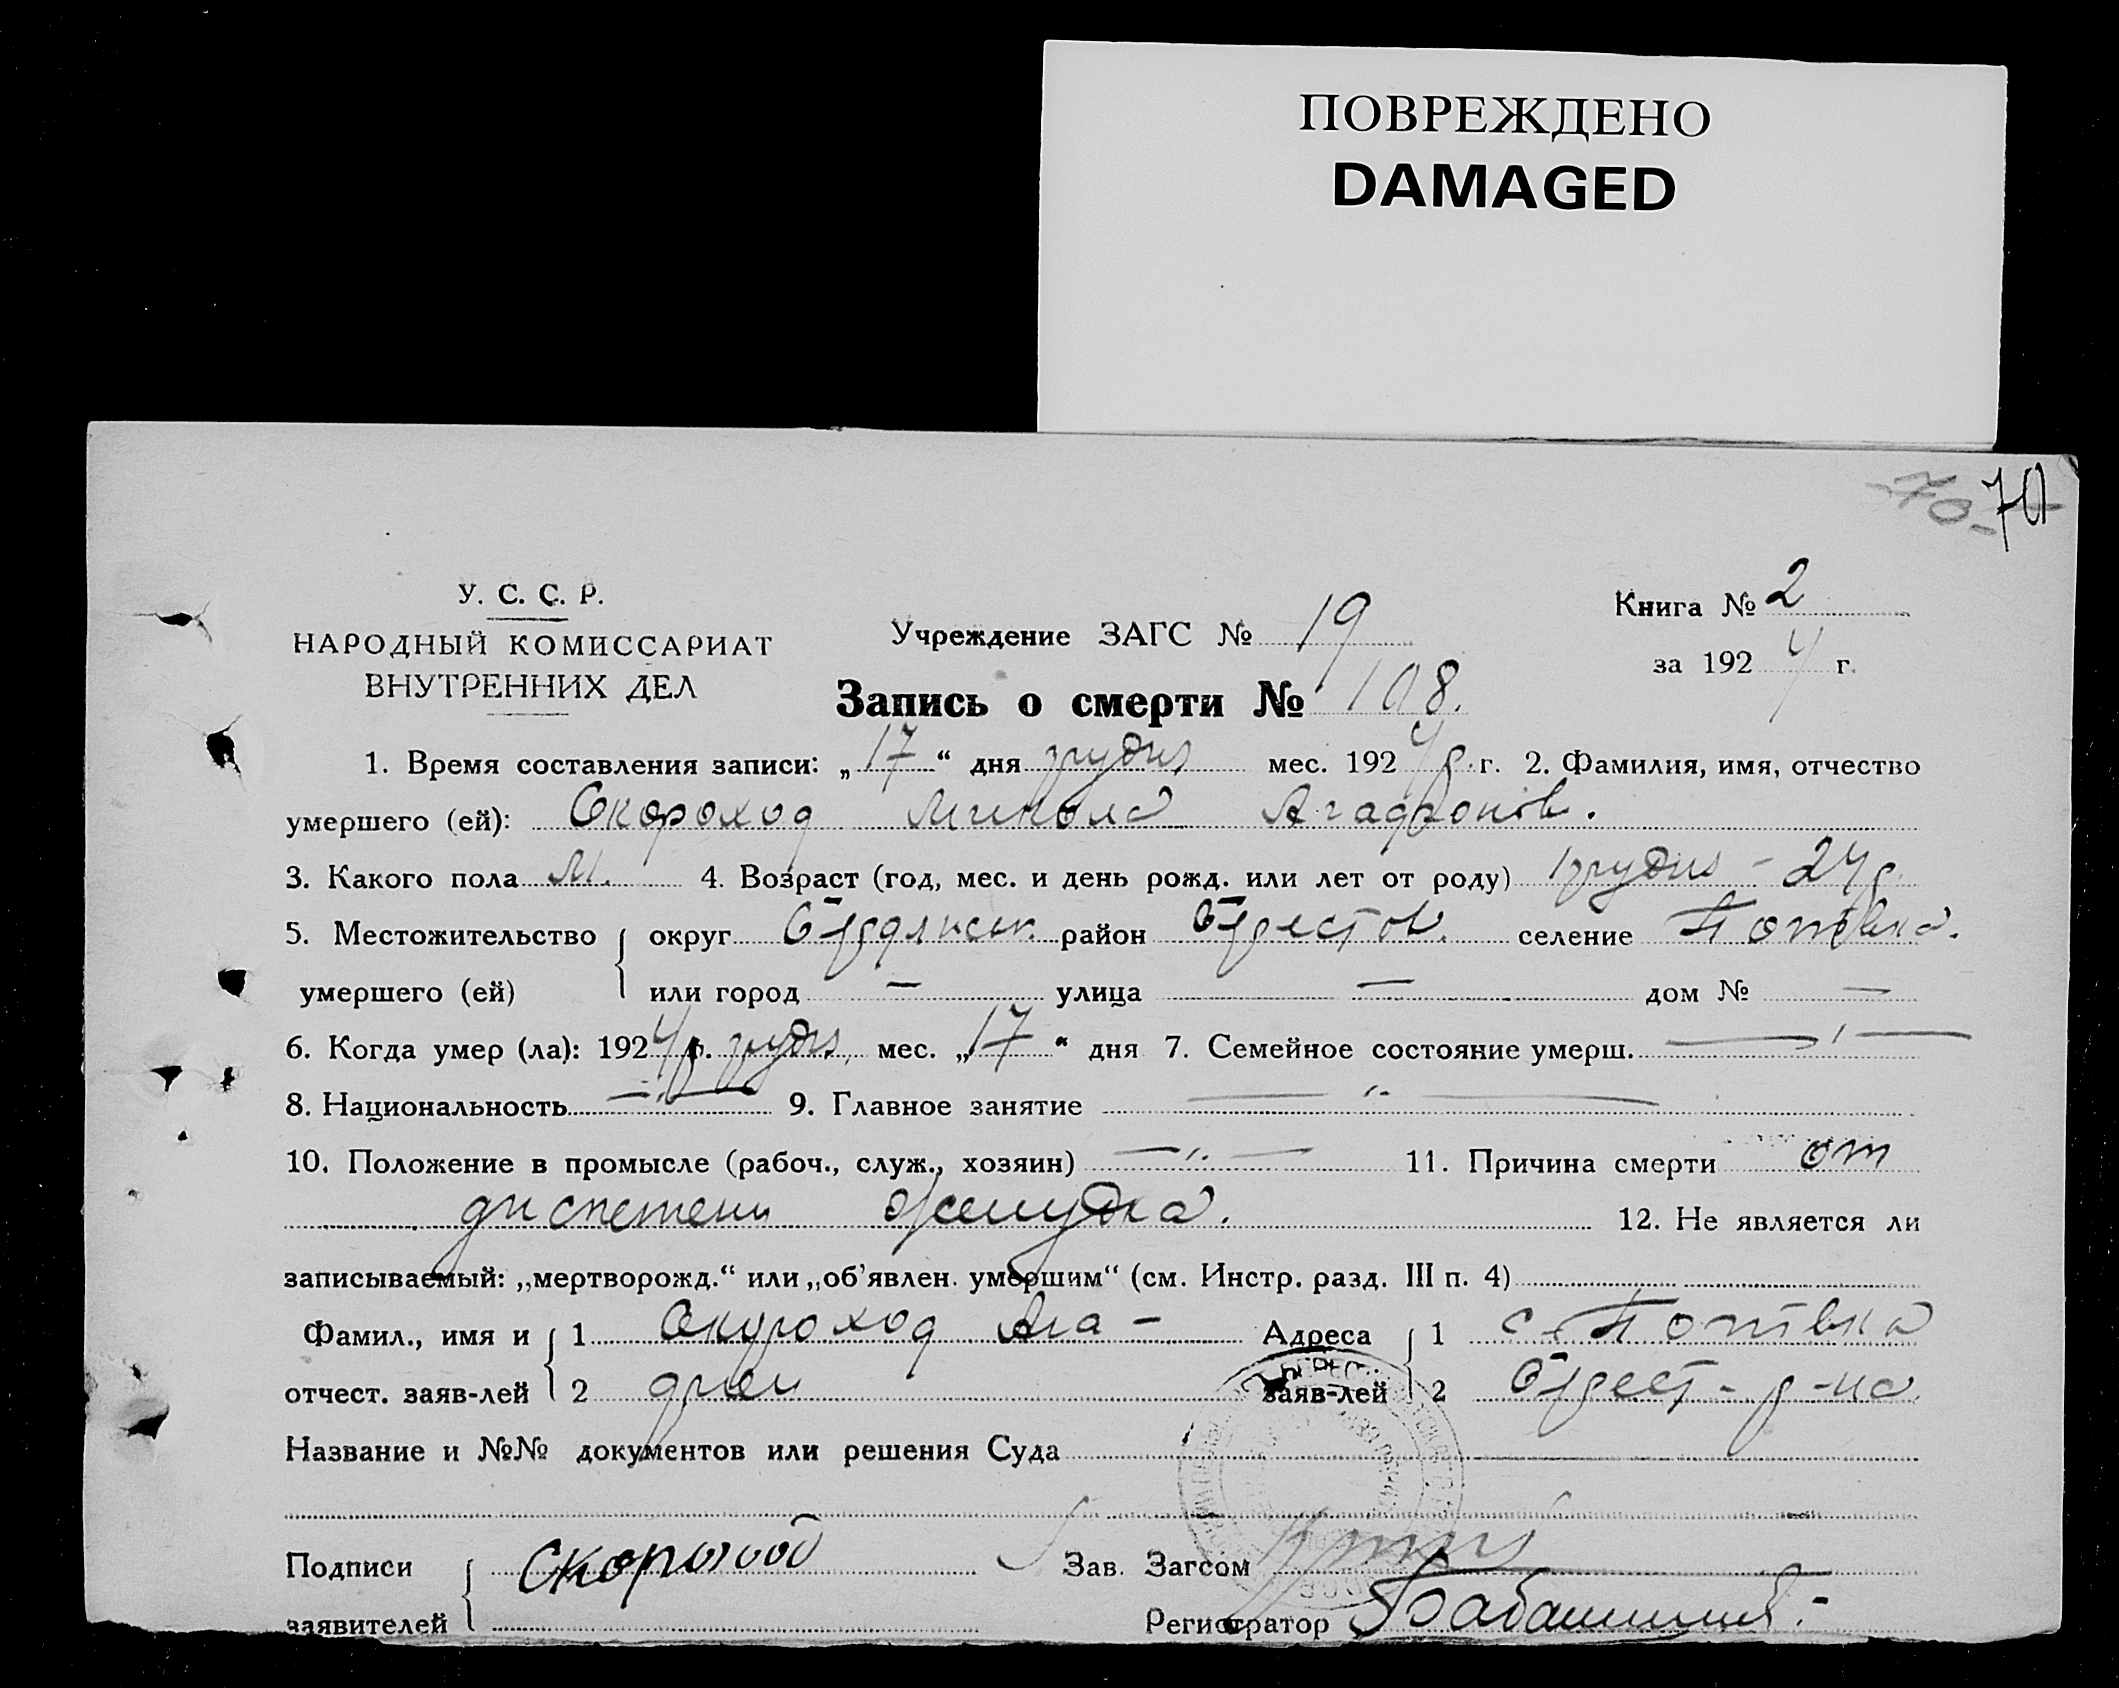 ПОВРЕЖДЕНО
DAMAGED
70- 70
У. С. С. Р.
НАРОДНЫЙ КОМИССАРИАТ
ВНУТРЕННИХ ДЕЛ
Учреждение ЗАГС № 19
Книга № 2
за 1924 г.
Запись о смерти № 108.
1. Время составления записи: „17“ дня грудня мес. 1924 р. г. 2. Фамилия, имя, отчество
умершего (ей): Скороход Микола Агафонов.
3. Какого пола М. 4. Возраст (год, мес. и день рожд. или лет от роду) грудня - 24 р.
5. Местожительство округ район Берестов. селение Попівка.
умершего (ей) или город — улица — дом № —
6. Когда умер (ла): 1924 р. грудня мес. „17“ дня 7. Семейное состояние умерш. — „ —
8. Национальность — „ — 9. Главное занятие — „ —
10. Положение в промысле (рабоч., служ., хозяин) — „ — 11. Причина смерти от
желудка. 12. Не является ли
записываемый: „мертворожд.“ или „об'явлен. умершим“ (см. Инстр. разд. III п. 4)
Фамил., имя и 1 Скороход Ага- Адреса 1 с. Попівка
отчест. заяв-лей 2 заяв-лей 2 Берест- р-на
Название и №№ документов или решения Суда
Подписи Скороход Зав. Загсом
заявителей Регистратор